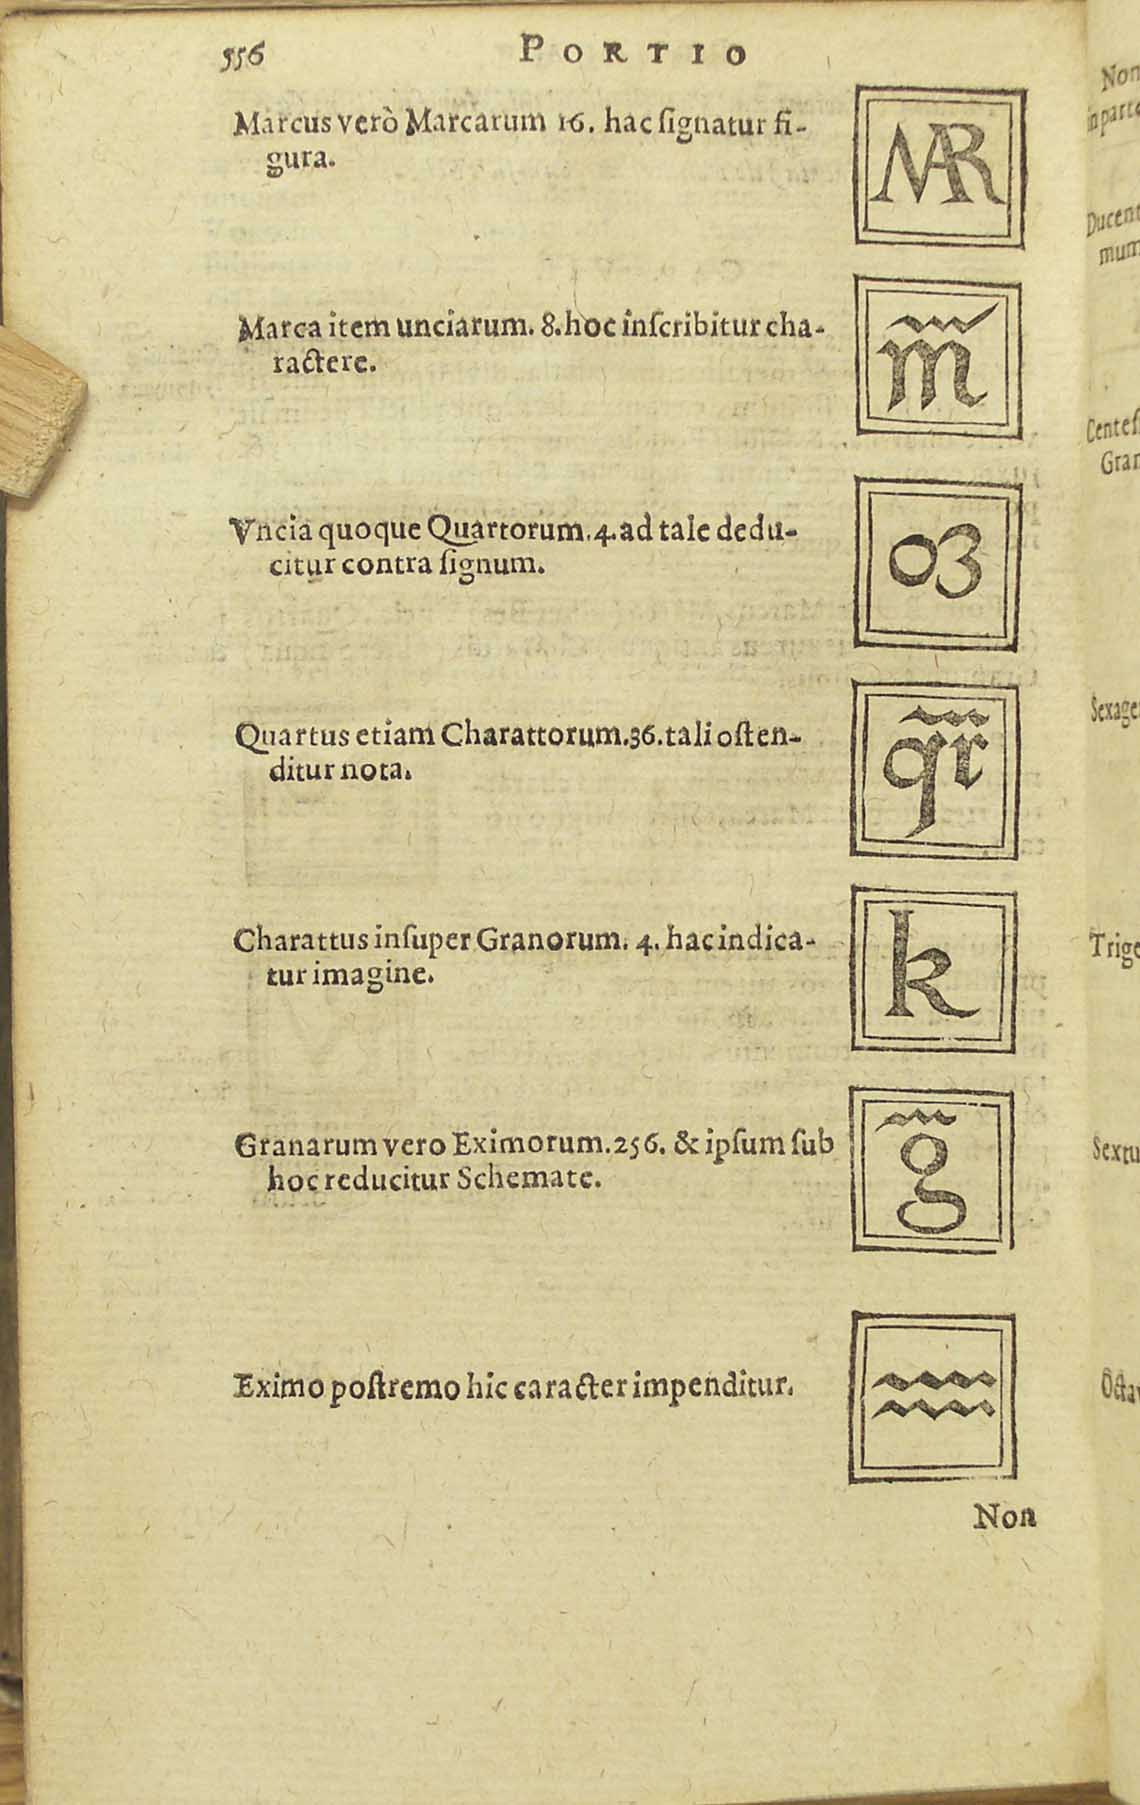 556 PORTIO
Marcus verò Marcarum 16. hac ſignatur fi-
gura.
MAR
Marca item unciarum. 8. hoc inſcribitur cha-
ractere.
m̃
Vncia quoque Quartorum. 4. ad tale dedu-
citur contra ſignum.
03
Quartus etiam Charattorum. 36. tali oſten-
ditur nota.
qr̃
Charattus inſuper Granorum. 4. hac indica-
tur imagine.
k
Granarum vero Eximorum. 256. & ipſum ſub
hoc reducitur Schemate.
g̃
Eximo poſtremo hic caracter impenditur.
Non